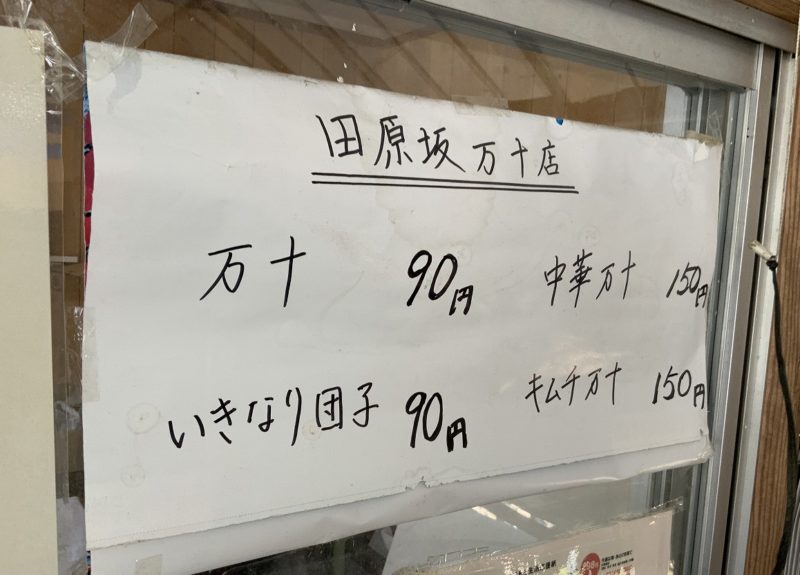 田原坂万十店
万十 90円
中華万十 150円
いきなり団子 90円
キムチ万十 150円